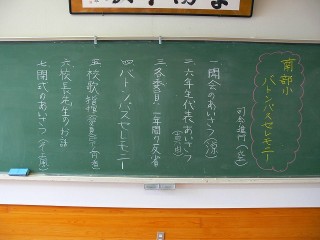 南部小
バトンパスセレモニー
司会進行
一 開会のあいさつ
二 六年生代表あいさつ
三 各委員 一年間の反省
四 バトンパスセレモニー
五 校歌
六 校長先生のお話
七 閉式のあいさつ